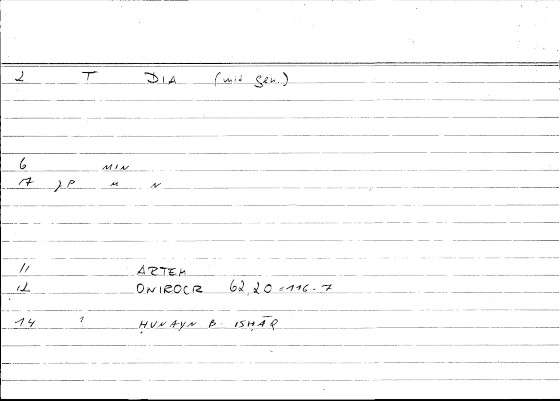 2 T DIA (mit gen.)
6 MIN
7 JP M N
11 ARTEM
12 ONIROCR 62,20 = 116-7
14 1 ḤUNAYN B. ISḤĀQ